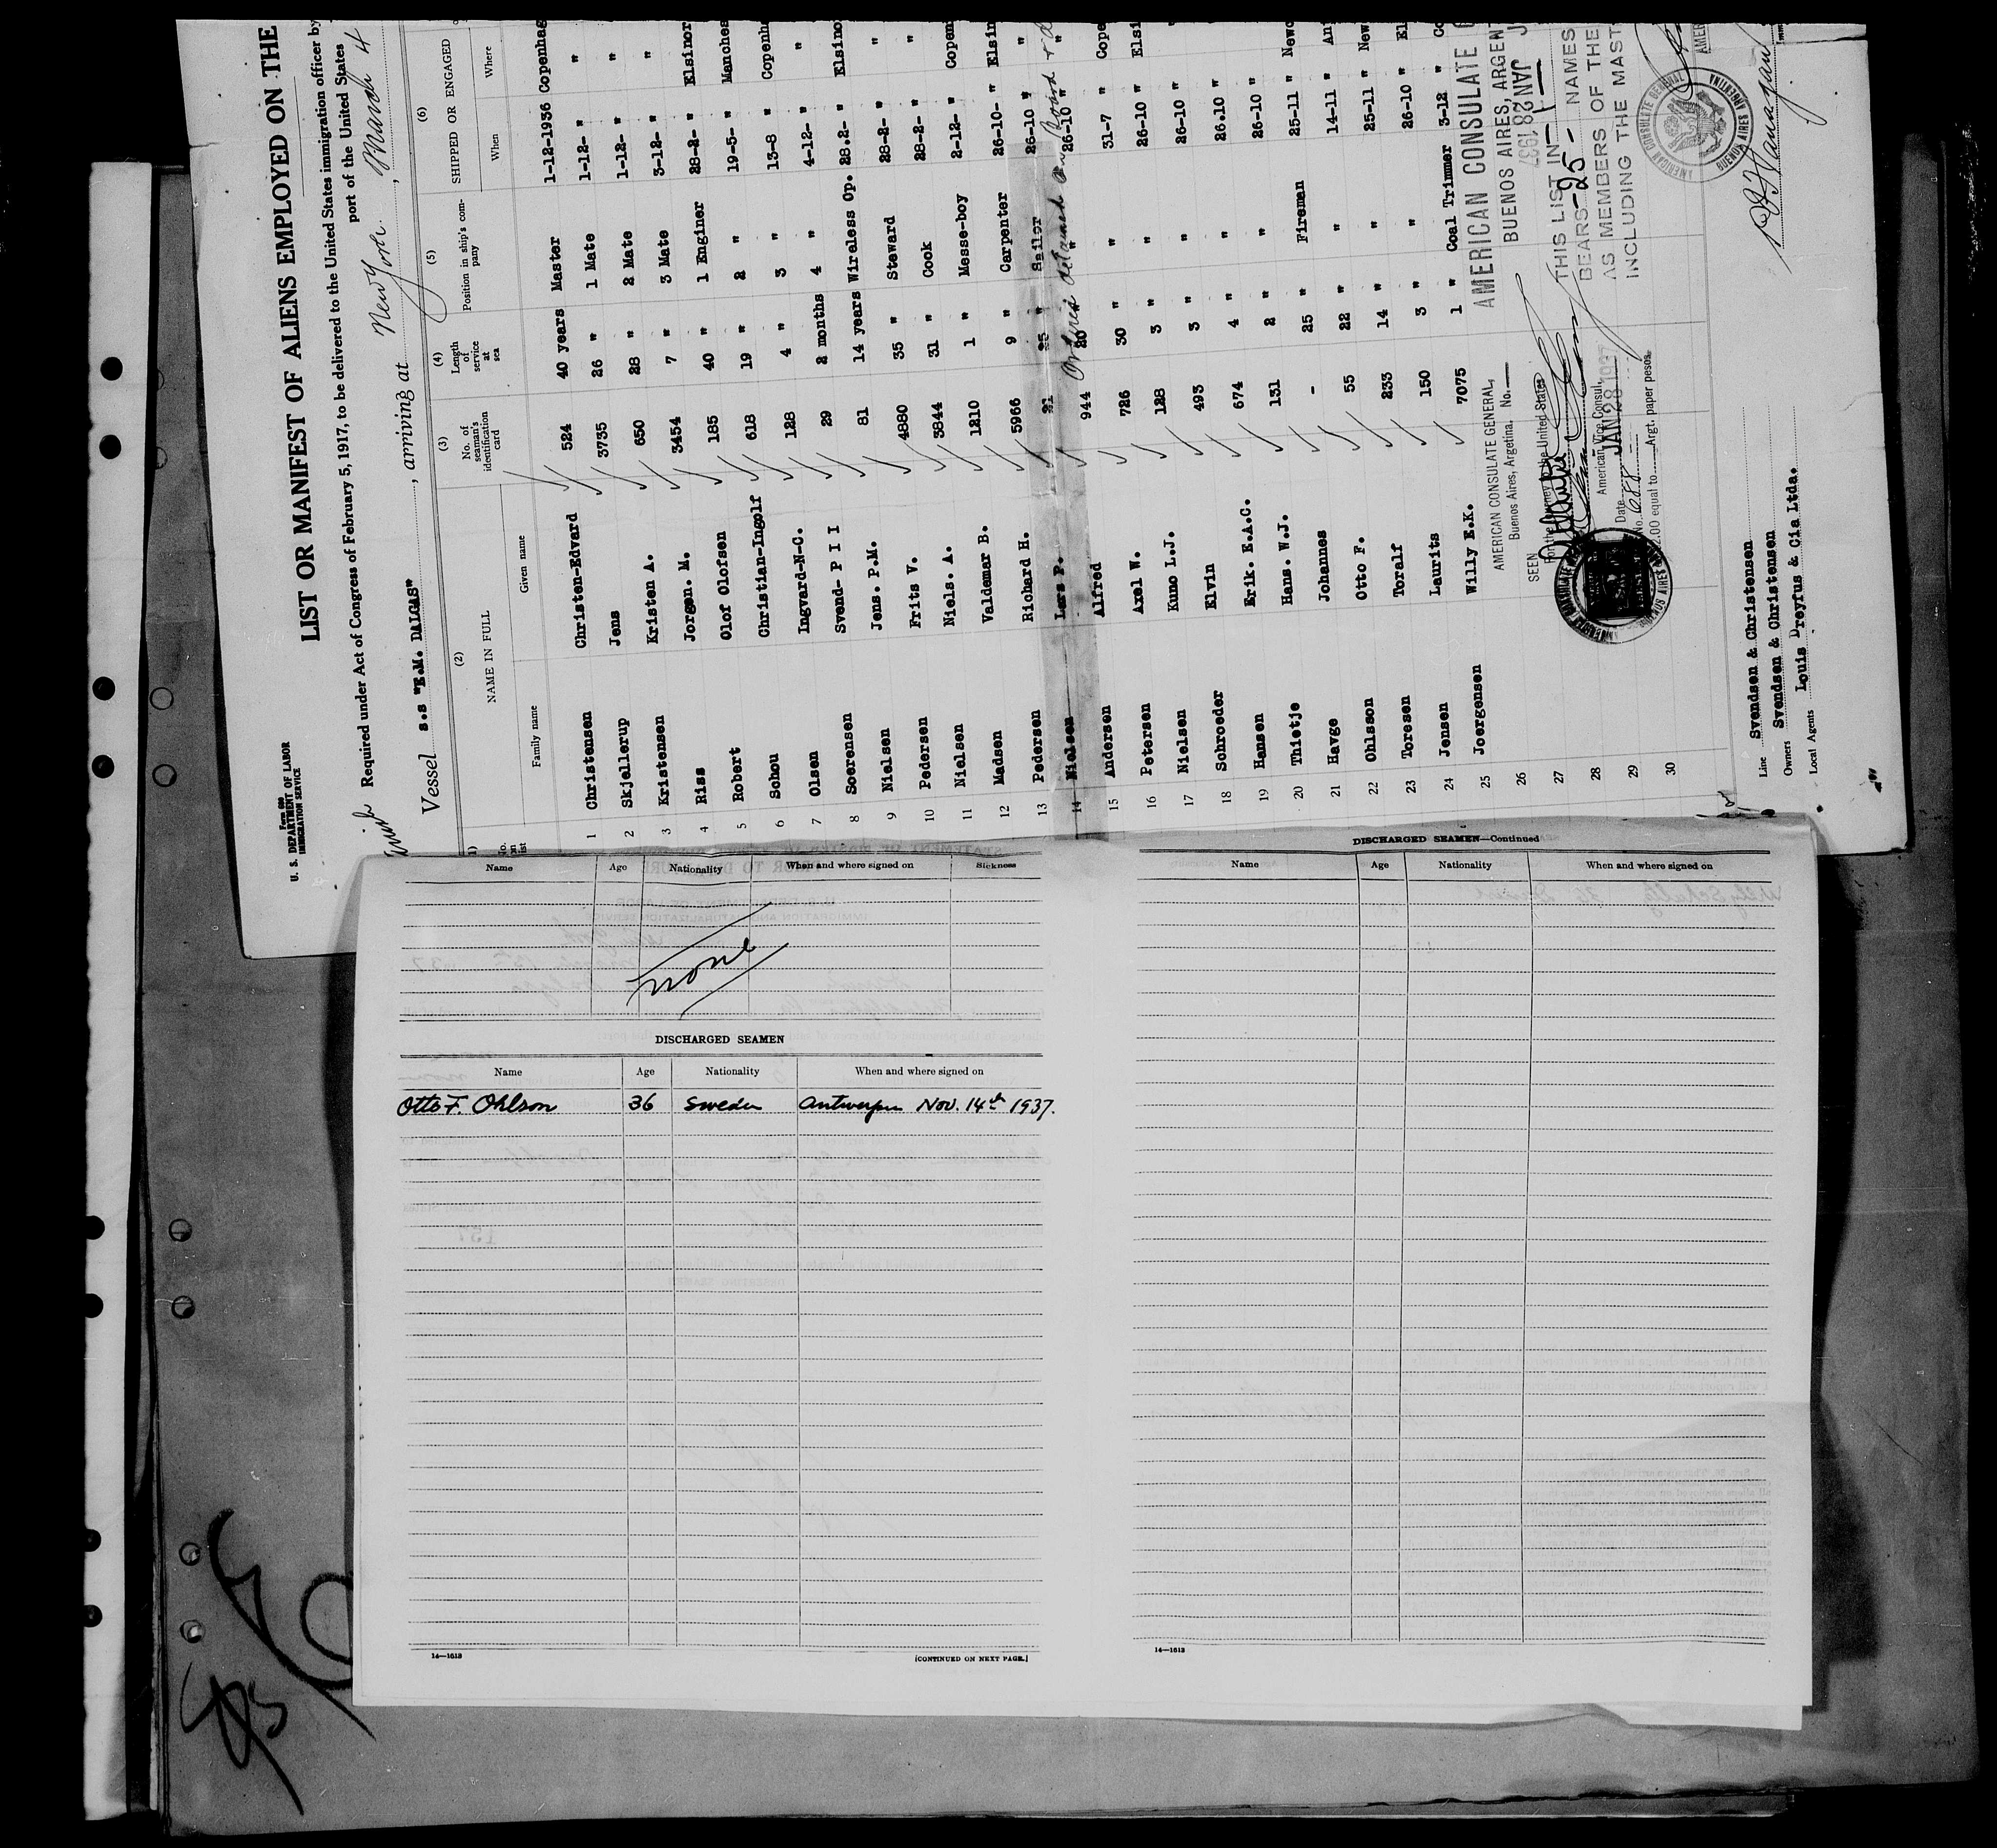 Form 680
U. S. DEPARTMENT OF LABOR
IMMIGRATION SERVICE
LIST OR MANIFEST OF ALIENS EMPLOYED ON THE
Required under Act of Congress of February 5, 1917, to be delivered to the United States immigration officer by
port of the United States
Vessel s.s "E.M. DALGAS", arriving at New York, March 4
(2) (3) (4) (5) (6)
NAME IN FULL No. of seaman's identification card Length of service at sea Position in ship's company SHIPPED OR ENGAGED
Family name Given name When Where
1 Christensen Christen-Edvard 524 40 years Master 1-12-1936 Copenhag
2 Skjellerup Jens 3735 26 " 1 Mate 1-12- " "
3 Kristensen Kristen A. 650 28 " 2 Mate 1-12- " "
4 Riss Jorgen. M. 3454 7 " 3 Mate 3-12- " "
5 Robert Olof Olofsen 185 40 " 1 Enginer 28-2- " Elsinor
6 Schou Christian-Ingolf 618 19 " 2 " 19-5- " Manches
7 Olsen Ingvard-N-C. 128 4 " 3 " 13-8 " Copenh
8 Soerensen Svend- P I I 29 2 months 4 " 4-12- " "
9 Nielsen Jens. P.M. 81 14 years Wireless Op. 28.2- " Elsino
10 Pedersen Frits V. 4880 35 " Steward 28-2- " "
11 Nielsen Niels. A. 3844 31 " Cook 28-2- " "
12 Madsen Valdemar B. 1210 1 " Messe-boy 2-12- " Copen
13 Pedersen Richard H. 5966 9 " Carpenter 26-10- " Elsin
14 Nielsen Lars P. 21 25 " Sailor 26-10 " "
Ordered detained on Board
15 Andersen Alfred 944 20 " " 26-10 " "
16 Petersen Axel W. 726 30 " " 31-7 " Cope
17 Nielsen Kuno L.J. 128 3 " " 26-10 " Elsi
18 Schroeder Elvin 493 3 " " 26-10 " "
19 Hansen Erik. E.A.C. 674 4 " " 26.10 "
20 Thietje Hans. W.J. 131 2 " " 26-10 "
21 Havge Johannes - 25 " Fireman 25-11 " Newc
22 Ohlson Otto F. 55 22 " " 14-11 " An
23 Toresen Toralf 233 14 " " 25-11 " New
24 Jensen Laurits 150 3 " " 26-10 " El
25 Joergensen Willy E.K. 7075 1 " Coal Trimmer 3-12 " Co
26
27
28
29
30
AMERICAN CONSULATE GENERAL,
Buenos Aires, Argetina. No.
SEEN
For the journey to the United States
American Vice Consul,
Date JAN 28 1937
No. 688
.00 equal to Argt. paper pesos.
AMERICAN CONSULATE G
BUENOS AIRES, ARGENT
JAN 28 1937
THIS LIST IN
BEARS -25- NAMES
AS MEMBERS OF THE
INCLUDING THE MAST
AMERICAN CONSULATE GENERAL
BUENOS AIRES ARGENTINA
Line Svendsen & Christensen
Owners Svendsen & Christensen
Local Agents Louis Dreyfus & Cia Ltda.
Name Age Nationality When and where signed on Sickness
none
DISCHARGED SEAMEN
Name Age Nationality When and where signed on
Otto F. Ohlson 36 Sweden Antwerpen Nov. 14th 1937.
14—1613 [CONTINUED ON NEXT PAGE.]
DISCHARGED SEAMEN—Continued
Name Age Nationality When and where signed on
14—1613